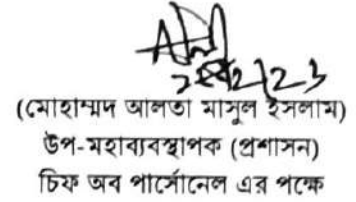 (মোহাম্মদ আলতা মাসুল ইসলাম)
উপ-মহাব্যবস্থাপক (প্রশাসন)
চিফ অব পার্সোনেল এর পক্ষে